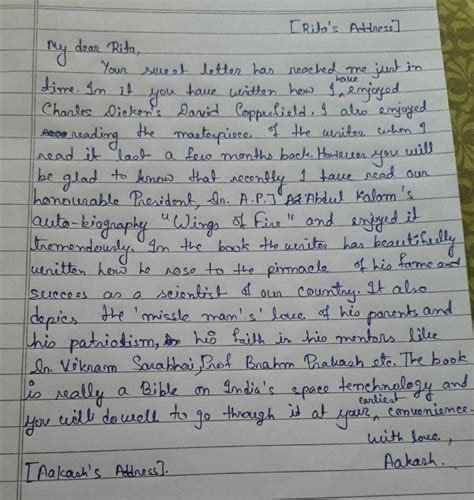 [Rita's Address]
My dear Rita,
Your sweet letter has reached me just in
time. In it you have written how I have enjoyed
Charles Dicken's David Copperfield. I also enjoyed
reading the masterpiece of the writer when I
read it last a few months back. However you will
be glad to know that recently I have read our
honourable President, Dr. A.P.J Abdul Kalam's
auto-biography "Wings of Fire" and enjoyed it
tremendously. In the book the writer has beautifully
written how he rose to the pinnacle of his fame and
success as a scientist of our country. It also
depics the 'missle man's' love of his parents and
his patriotism, his faith in his mentors like
Dr. Vikram Sarabhai, Prof Brahm Prakash etc. The book
is really a Bible on India's space technchology and
you will do well to go through it at your earliest convenience.
With love,
Aakash.
[Aakash's Address].